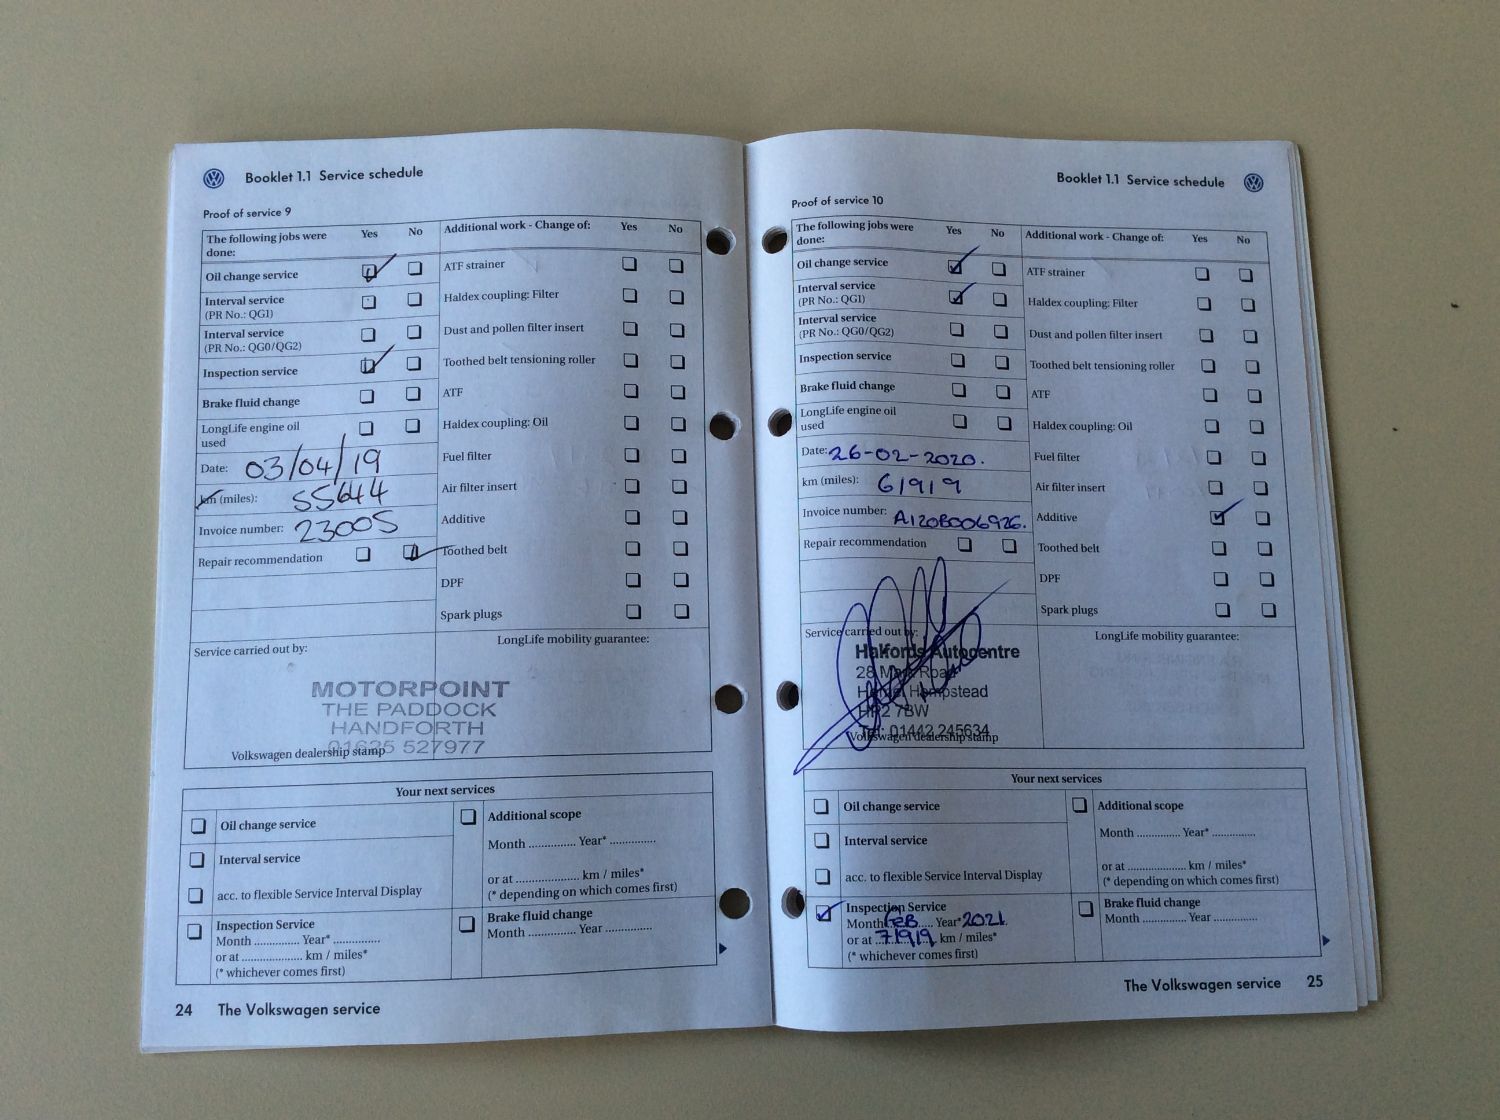 Booklet 1.1 Service schedule
Proof of service 9
The following jobs were done: Yes No
Oil change service
Interval service
(PR No.: QG1)
Interval service
(PR No.: QG0/QG2)
Inspection service
Brake fluid change
LongLife engine oil
used
Date: 03/04/19
km (miles): 55644
Invoice number: 23005
Repair recommendation
Additional work - Change of: Yes No
ATF strainer
Haldex coupling: Filter
Dust and pollen filter insert
Toothed belt tensioning roller
ATF
Haldex coupling: Oil
Fuel filter
Air filter insert
Additive
Toothed belt
DPF
Spark plugs
Service carried out by:
MOTORPOINT
THE PADDOCK
HANDFORTH
01625 527977
Volkswagen dealership stamp
LongLife mobility guarantee:
Your next services
Oil change service
Interval service
acc. to flexible Service Interval Display
Inspection Service
Month ............... Year* ...............
or at .................... km / miles*
(* whichever comes first)
Additional scope
Month ............... Year* ...............
or at .................... km / miles*
(* depending on which comes first)
Brake fluid change
Month ............... Year ...............
24 The Volkswagen service
Booklet 1.1 Service schedule
Proof of service 10
The following jobs were done: Yes No
Oil change service
Interval service
(PR No.: QG1)
Interval service
(PR No.: QG0/QG2)
Inspection service
Brake fluid change
LongLife engine oil
used
Date: 26-02-2020.
km (miles): 61919
Invoice number: A120B006926.
Repair recommendation
Additional work - Change of: Yes No
ATF strainer
Haldex coupling: Filter
Dust and pollen filter insert
Toothed belt tensioning roller
ATF
Haldex coupling: Oil
Fuel filter
Air filter insert
Additive
Toothed belt
DPF
Spark plugs
Service carried out by:
Halfords Autocentre
28 Mark Road
Hemel Hempstead
HP2 7BW
Tel: 01442 245634
Volkswagen dealership stamp
LongLife mobility guarantee:
Your next services
Oil change service
Interval service
acc. to flexible Service Interval Display
Inspection Service
Month FEB Year* 2021
or at 71919 km / miles*
(* whichever comes first)
Additional scope
Month ............... Year* ...............
or at .................... km / miles*
(* depending on which comes first)
Brake fluid change
Month ............... Year ...............
The Volkswagen service 25